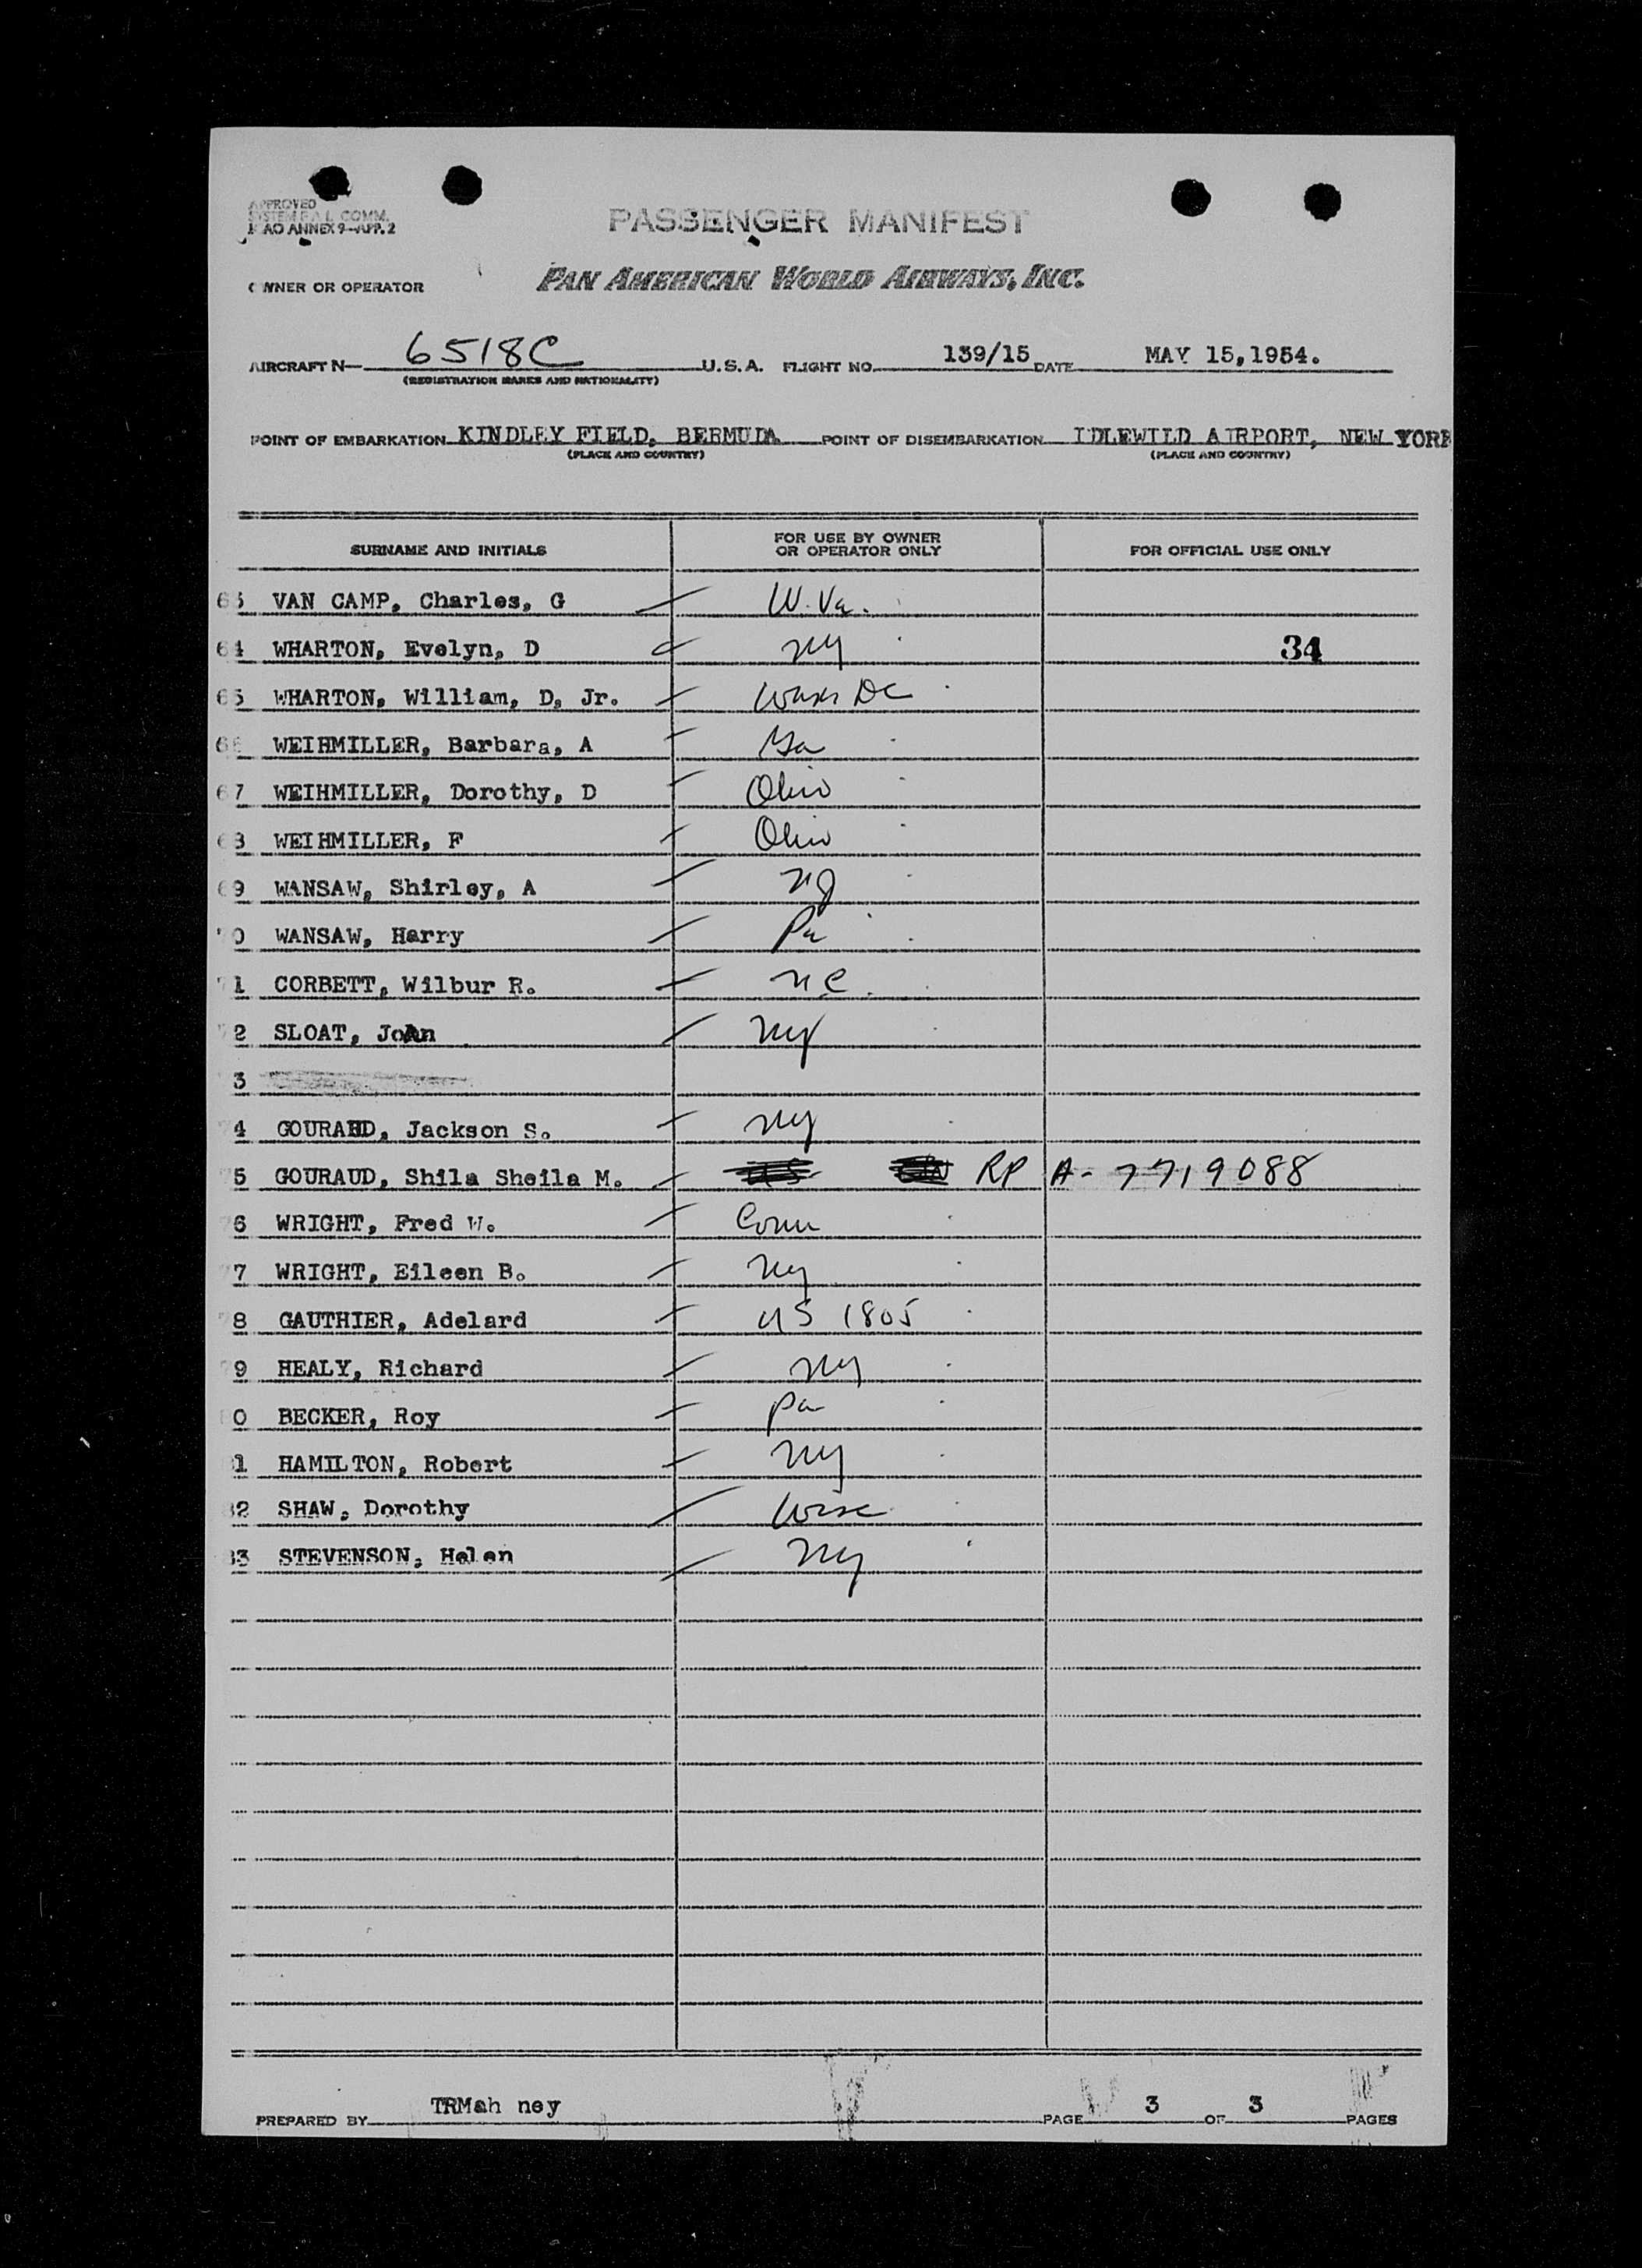 APPROVED
SYSTEM F.A.L. COMM.
ICAO ANNEX 9-APP. 2
PASSENGER MANIFEST
OWNER OR OPERATOR PAN AMERICAN WORLD AIRWAYS, INC.
AIRCRAFT N- 6518C U.S.A. FLIGHT NO. 139/15 DATE MAY 15,1954.
(REGISTRATION MARKS AND NATIONALITY)
POINT OF EMBARKATION KINDLEY FIELD, BERMUDA POINT OF DISEMBARKATION IDLEWILD AIRPORT, NEW YORK
(PLACE AND COUNTRY) (PLACE AND COUNTRY)
SURNAME AND INITIALS FOR USE BY OWNER OR OPERATOR ONLY FOR OFFICIAL USE ONLY
63 VAN CAMP, Charles, G W. Va.
64 WHARTON, Evelyn, D NY 34
65 WHARTON, William, D, Jr. Wash DC
66 WEIHMILLER, Barbara, A Ga
67 WEIHMILLER, Dorothy, D Ohio
68 WEIHMILLER, F Ohio
69 WANSAW, Shirley, A NJ
70 WANSAW, Harry Pa
71 CORBETT, Wilbur R. N.C.
72 SLOAT, JoAn NY
3
4 GOURAUD, Jackson S. NY
5 GOURAUD, Shila Sheila M. RP A-7719088
6 WRIGHT, Fred W. Conn
7 WRIGHT, Eileen B. NY
8 GAUTHIER, Adelard US 1805
9 HEALY, Richard NY
0 BECKER, Roy Pa
1 HAMILTON, Robert NY
82 SHAW, Dorothy Wisc
83 STEVENSON, Helen NY
PREPARED BY TRMah ney PAGE 3 OF 3 PAGES